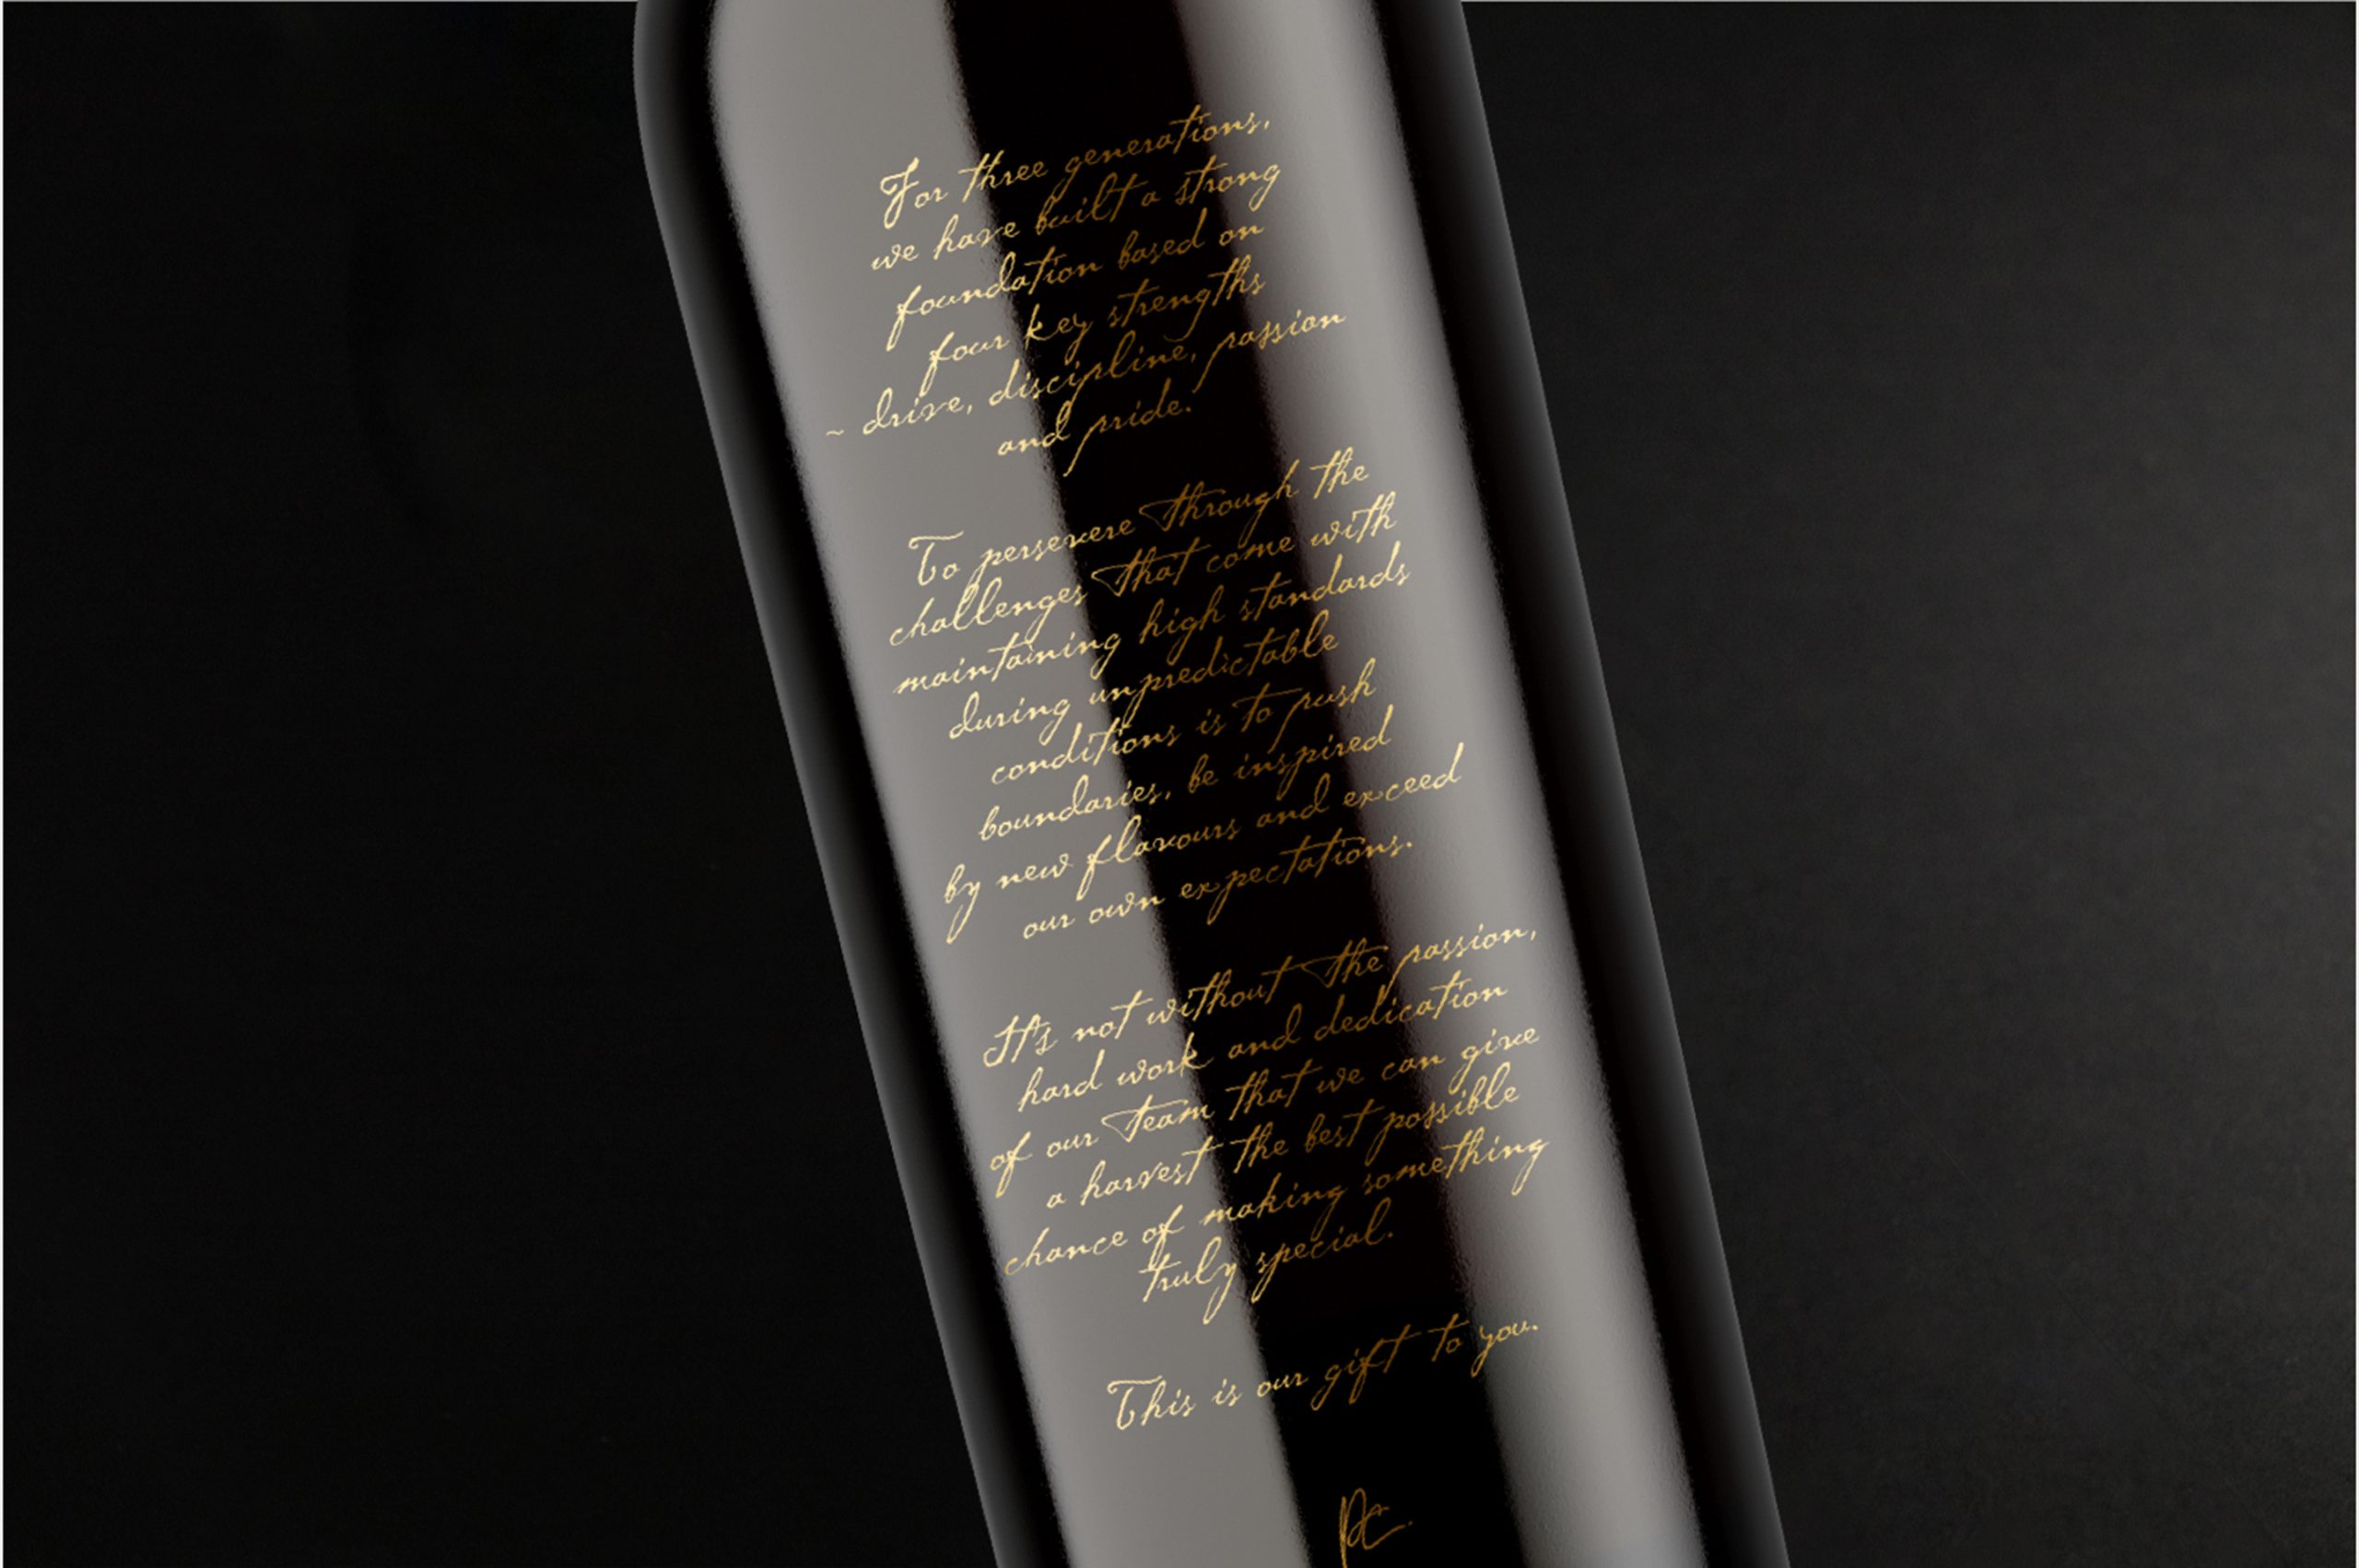 For three generations,
we have built a strong
foundation based on
four key strengths
~ drive, discipline, passion
and pride.
To persevere through the
challenges that come with
maintaining high standards
during unpredictable
conditions is to push
boundaries, be inspired
by new flavours and exceed
our own expectations.
It's not without the passion,
hard work and dedication
of our team that we can give
a harvest the best possible
chance of making something
truly special.
This is our gift to you.